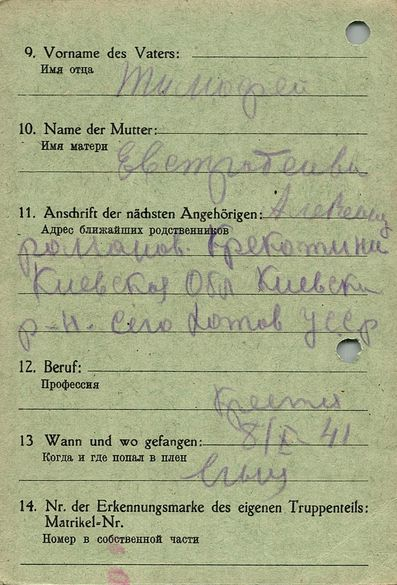 9. Vorname des Vaters:
Имя отца
Тимофей
10. Name der Mutter:
Имя матери
11. Anschrift der nächsten Angehörigen:
Адрес ближайших родственников
Киевская Обл Киевски
р-н. село Хотов УССР
12. Beruf:
Профессия
Крестя
13 Wann und wo gefangen:
8/ 41
Когда и где попал в плен
14. Nr. der Erkennungsmarke des eigenen Truppenteils:
Matrikel-Nr.
Номер в собственной части